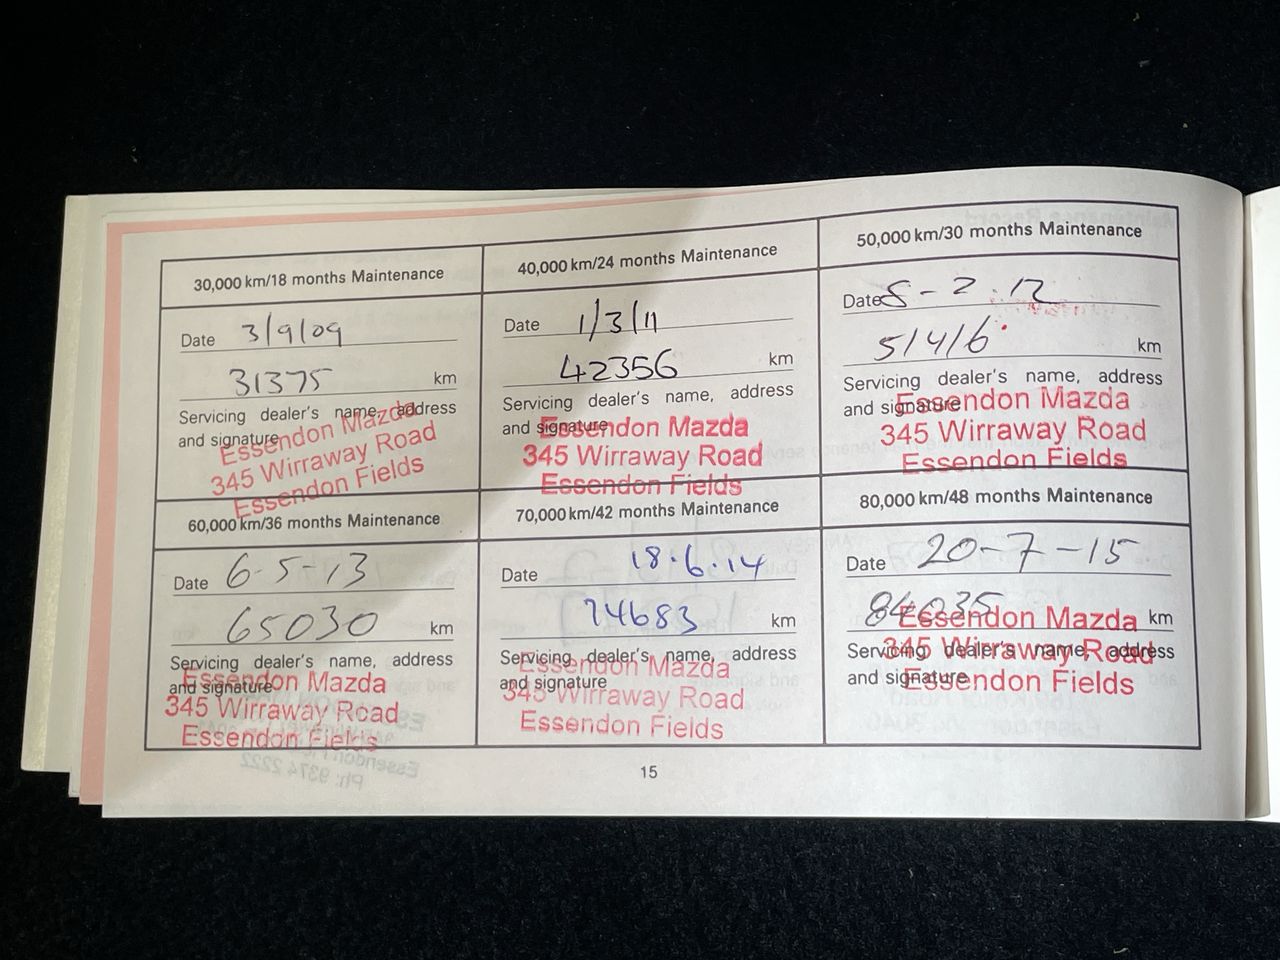 30,000 km/18 months Maintenance
Date 3/9/09
31375 km
Servicing dealer's name, address
and signature
Essendon Mazda
345 Wirraway Road
Essendon Fields
40,000 km/24 months Maintenance
Date 1/3/11
42356 km
Servicing dealer's name, address
and signature
Essendon Mazda
345 Wirraway Road
Essendon Fields
50,000 km/30 months Maintenance
Date 8-2.12
51416 km
Servicing dealer's name, address
and signature
Essendon Mazda
345 Wirraway Road
Essendon Fields
60,000 km/36 months Maintenance
Date 6-5-13
65030 km
Servicing dealer's name, address
and signature
Essendon Mazda
345 Wirraway Road
Essendon Fields
70,000 km/42 months Maintenance
Date 18.6.14
74683 km
Servicing dealer's name, address
and signature
Essendon Mazda
345 Wirraway Road
Essendon Fields
80,000 km/48 months Maintenance
Date 20-7-15
84035 km
Servicing dealer's name, address
and signature
Essendon Mazda
345 Wirraway Road
Essendon Fields
15